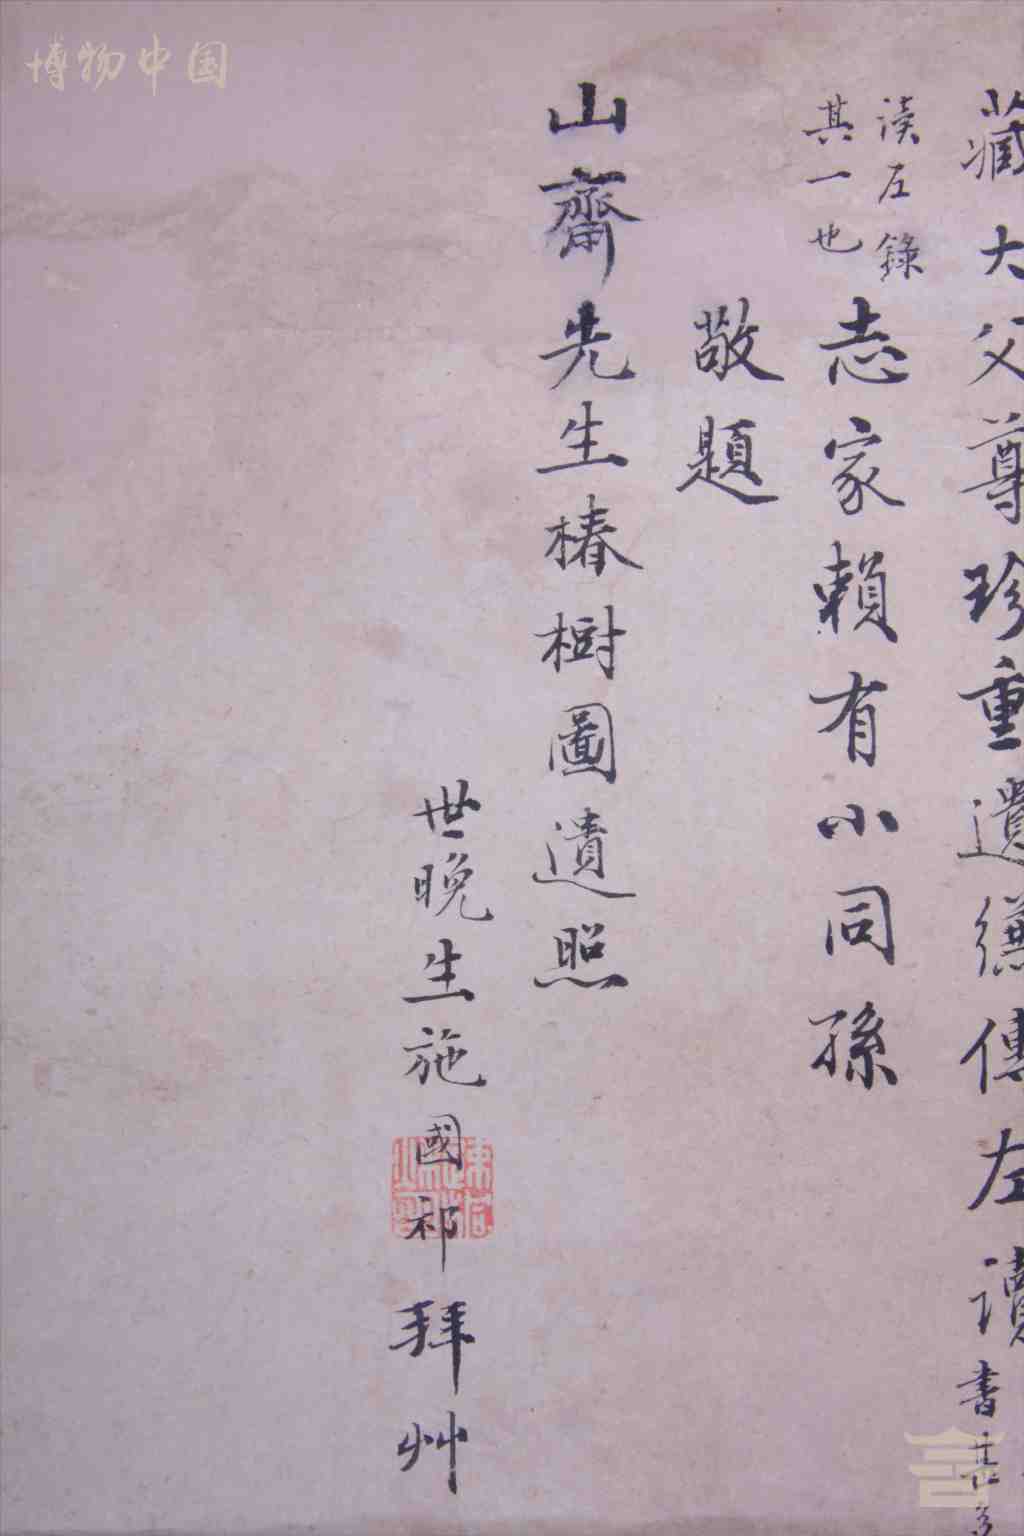 藏大父尊珍重遺
傳左讀
書甚多
讀左錄
其一也
志家賴有小同孫
敬題
山齋先生椿樹圖遺照
世晚生施國祁拜艸
博物中国